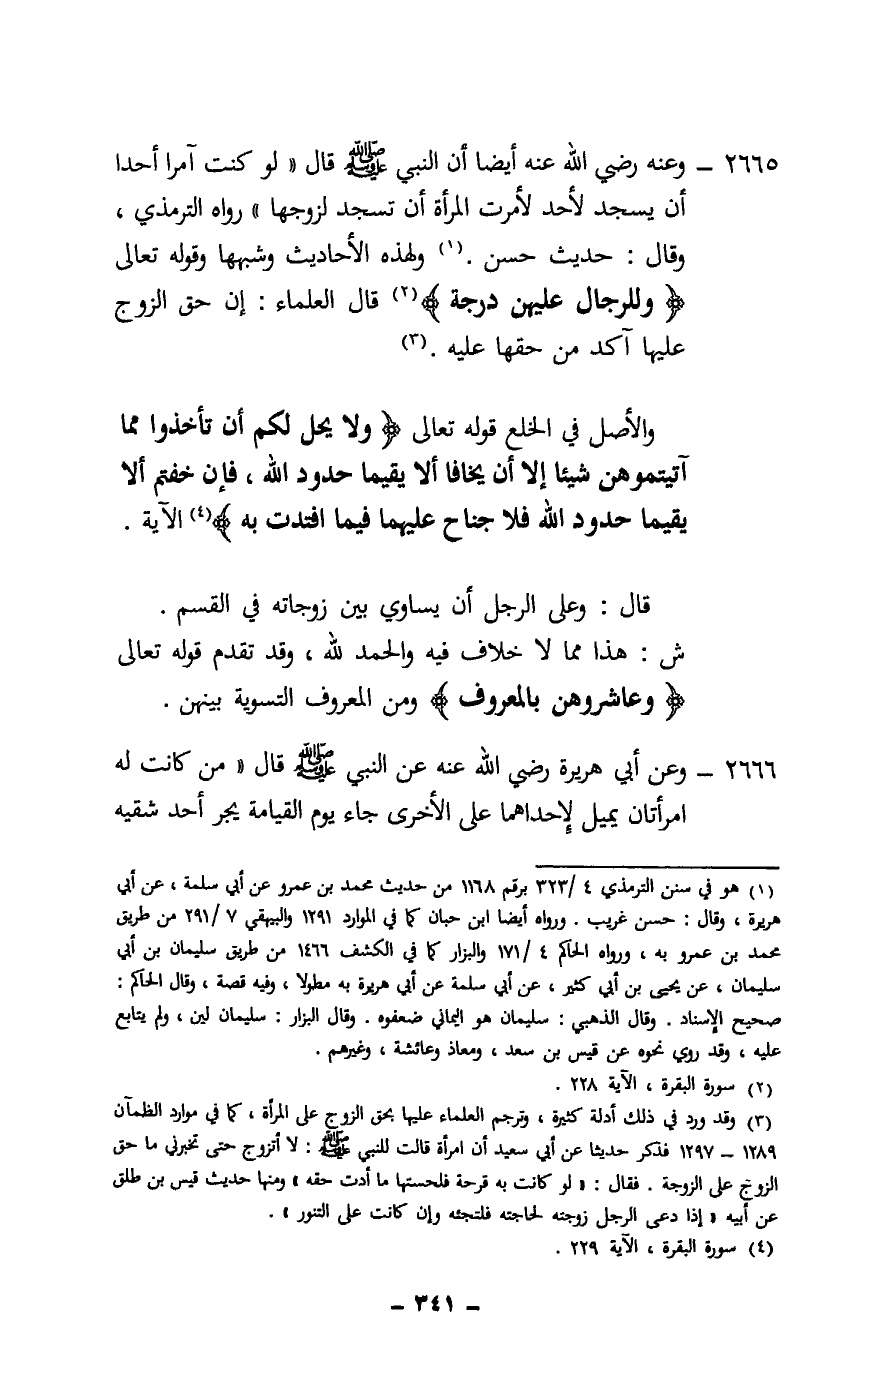 ٢٦٦٥ ــ وعنه رضي الله عنه أيضا أن النبي ﷺ قال « لو كنت آمرا أحدا
أن يسجد لأحد لأمرت المرأة أن تسجد لزوجها » رواه الترمذي ،
وقال : حديث حسن .(١) ولهذه الأحاديث وشبهها وقوله تعالى
﴿ وللرجال عليهن درجة ﴾(٢) قال العلماء : إن حق الزوج
عليها آكد من حقها عليه .(٣)
والأصل في الخلع قوله تعالى ﴿ ولا يحل لكم أن تأخذوا مما
آتيتموهن شيئا إلا أن يخافا ألا يقيما حدود الله ، فإن خفتم ألا
يقيما حدود الله فلا جناح عليهما فيما افتدت به ﴾(٤) الآية .
قال : وعلى الرجل أن يساوي بين زوجاته في القسم .
ش : هذا مما لا خلاف فيه والحمد لله ، وقد تقدم قوله تعالى
﴿ وعاشروهن بالمعروف ﴾ ومن المعروف التسوية بينهن .
٢٦٦٦ ــ وعن أبي هريرة رضي الله عنه عن النبي ﷺ قال « من كانت له
امرأتان يميل لإحداهما على الأخرى جاء يوم القيامة يجر أحد شقيه
(١) هو في سنن الترمذي ٤ /٣٢٣ برقم ١١٦٨ من حديث محمد بن عمرو عن أبي سلمة ، عن أبي
هريرة ، وقال : حسن غريب . ورواه أيضا ابن حبان كما في الموارد ١٢٩١ والبيهقي ٧ /٢٩١ من طريق
محمد بن عمرو به ، ورواه الحاكم ٤ /١٧١ والبزار كما في الكشف ١٤٦٦ من طريق سليمان بن أبي
سليمان ، عن يحيى بن أبي كثير ، عن أبي سلمة عن أبي هريرة به مطولا ، وفيه قصة ، وقال الحاكم :
صحيح الإسناد . وقال الذهبي : سليمان هو اليماني ضعفوه . وقال البزار : سليمان لين ، ولم يتابع
عليه ، وقد روي نحوه عن قيس بن سعد ، ومعاذ وعائشة ، وغيرهم .
(٢) سورة البقرة ، الآية ٢٢٨ .
(٣) وقد ورد في ذلك أدلة كثيرة ، وترجم العلماء عليها بحق الزوج على المرأة ، كما في موارد الظمآن
١٢٨٩ ــ ١٢٩٧ فذكر حديثا عن أبي سعيد أن امرأة قالت للنبي ﷺ : لا أتزوج حتى تخبرني ما حق
الزوج على الزوجة . فقال : « لو كانت به قرحة فلحستها ما أدت حقه » ومنها حديث قيس بن طلق
عن أبيه « إذا دعى الرجل زوجته لحاجته فلتجئه وإن كانت على التنور » .
(٤) سورة البقرة ، الآية ٢٢٩ .
ــ ٣٤١ ــ